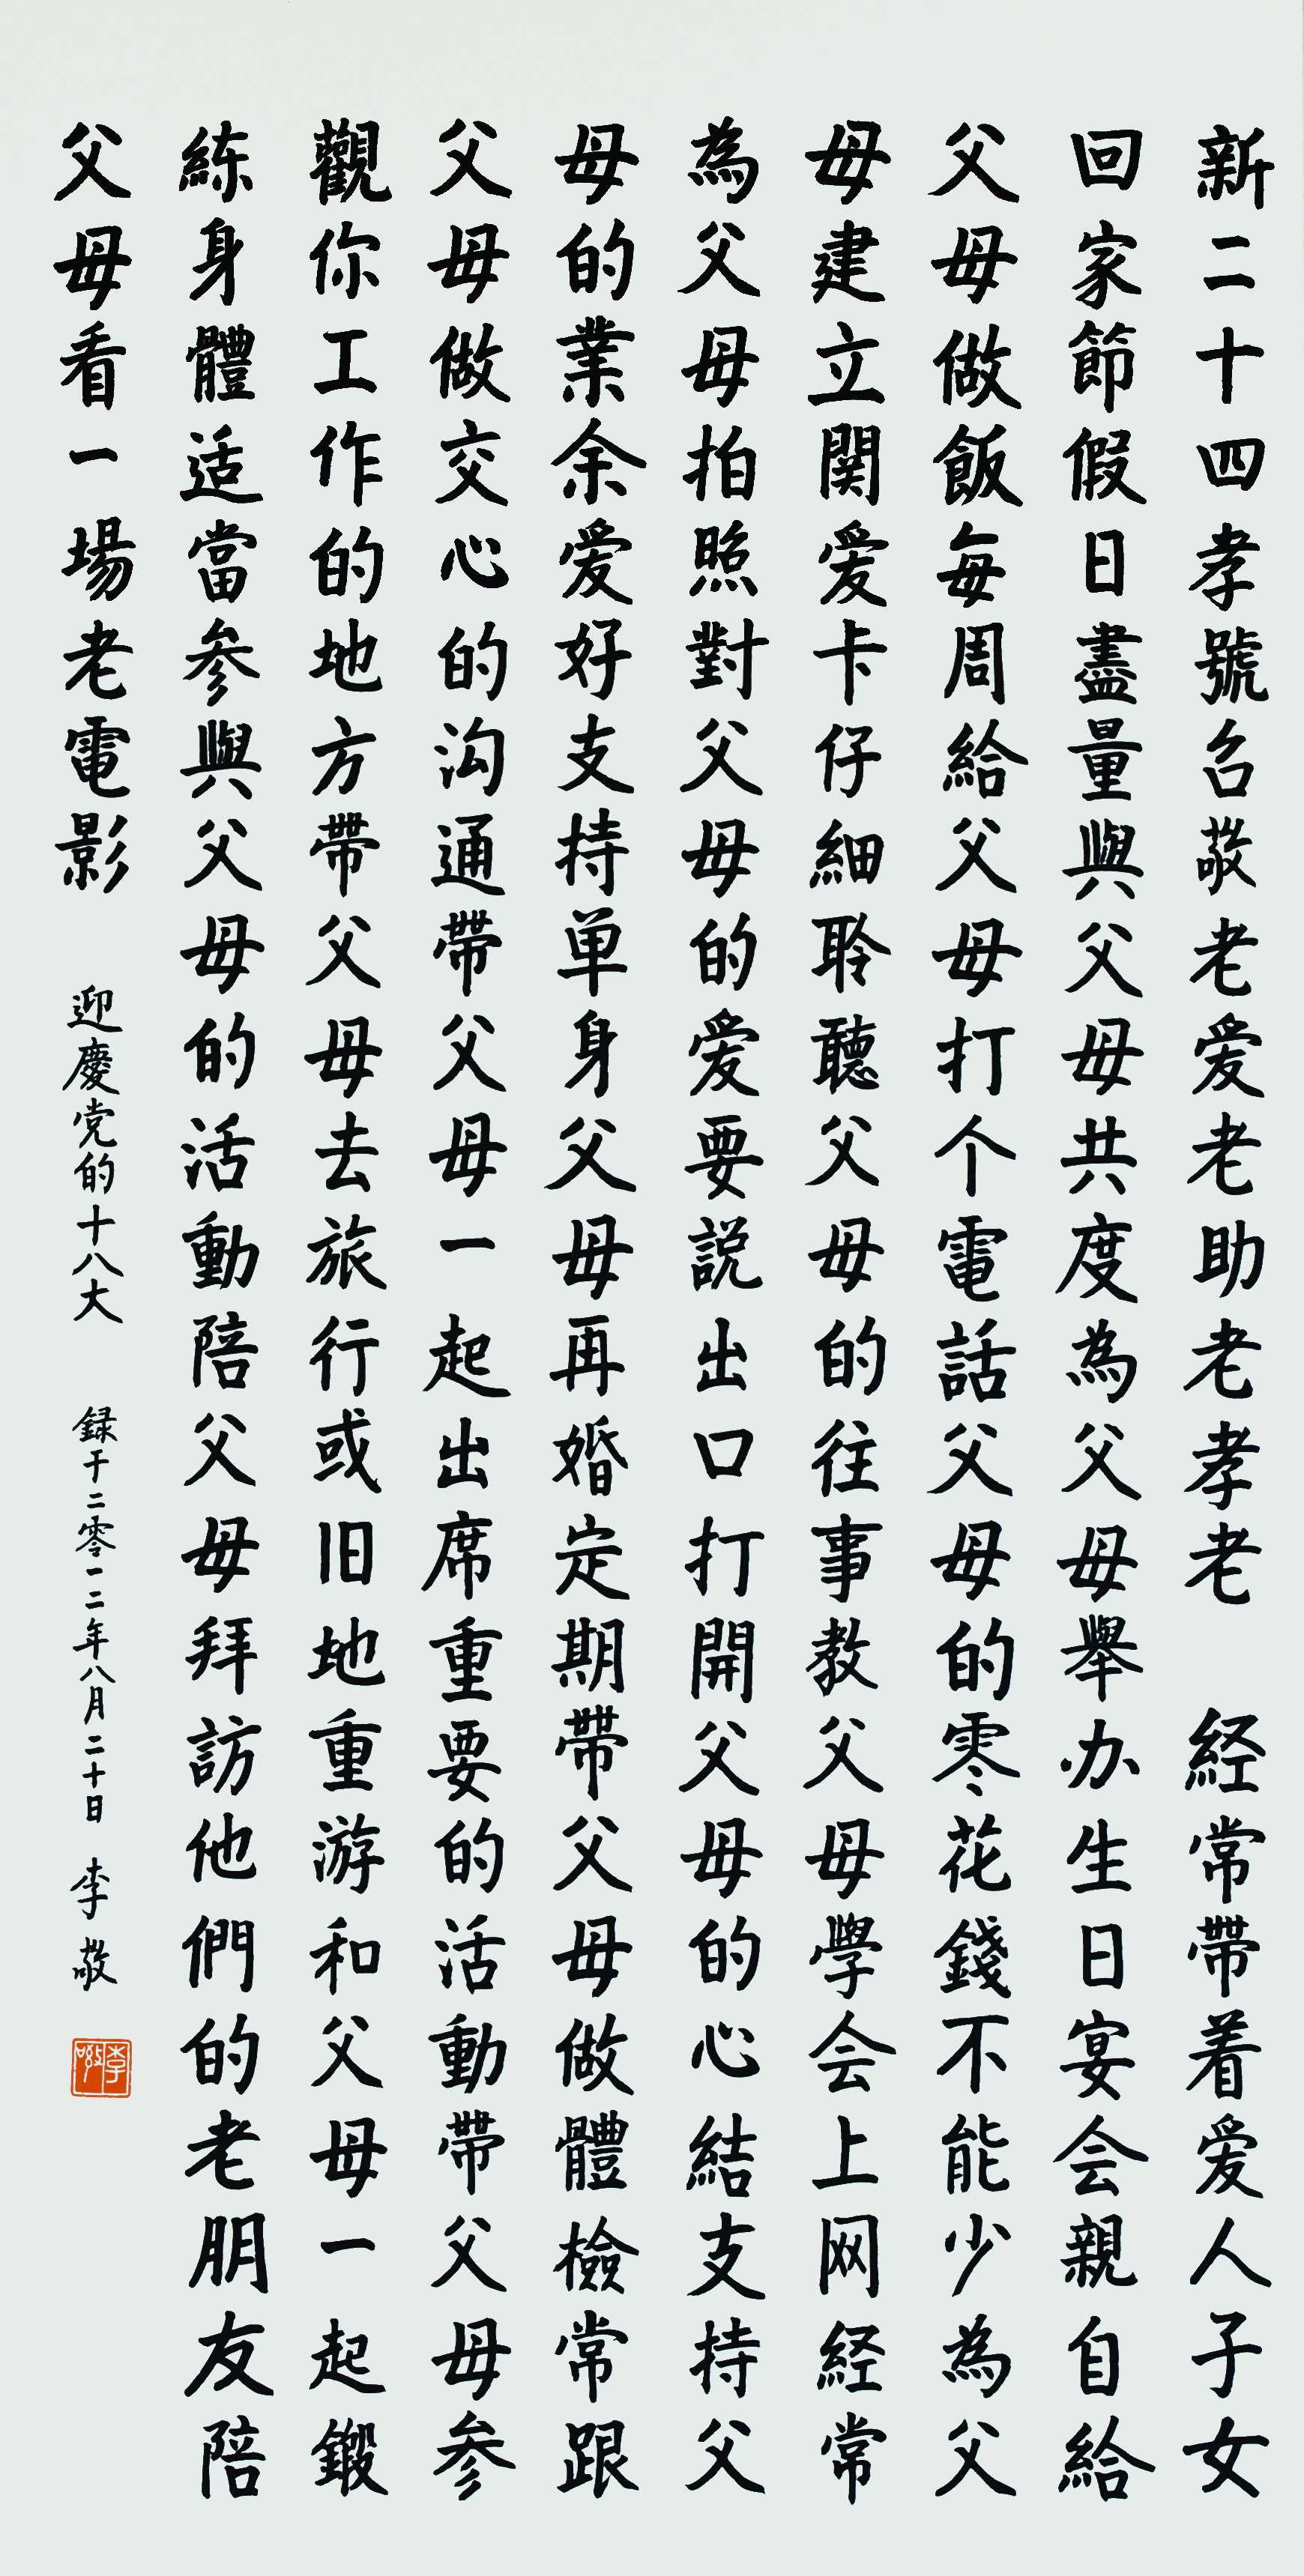 新二十四孝號召敬老爱老助老孝老 経常带着爱人子女
回家節假日盡量與父母共度為父母舉办生日宴会親自給
父母做飯每周給父母打个電話父母的零花錢不能少為父
母建立関爱卡仔細聆聽父母的往事教父母學会上网経常
為父母拍照對父母的爱要説出口打開父母的心結支持父
母的業余爱好支持单身父母再婚定期帶父母做體檢常跟
父母做交心的沟通帶父母一起出席重要的活動帶父母参
觀你工作的地方帶父母去旅行或旧地重游和父母一起鍛
練身體适當参與父母的活動陪父母拜訪他們的老朋友陪
父母看一場老電影 迎慶党的十八大 録于二零一二年八月二十日 李敬